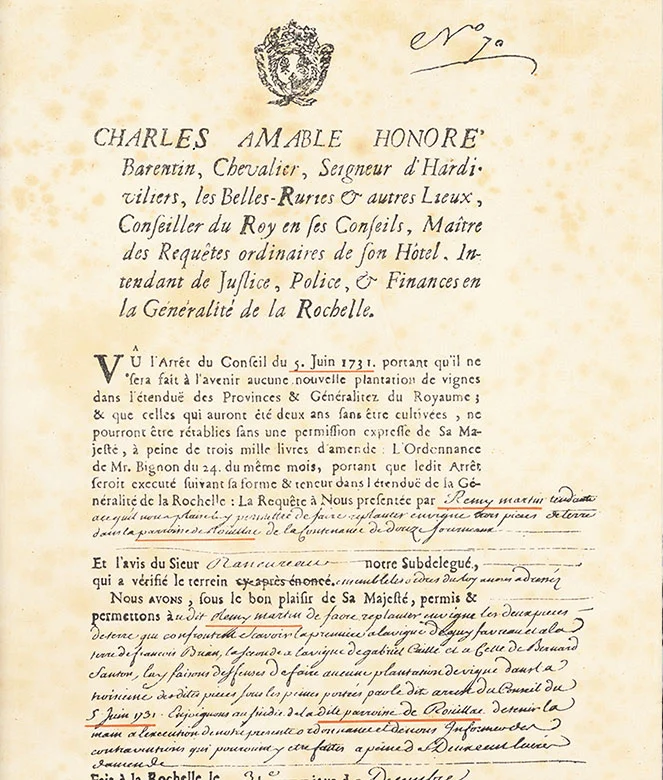 No 70
CHARLES AMABLE HONORE'
Barentin, Chevalier, Seigneur d'Hardi-
viliers, les Belles-Ruries & autres Lieux,
Conseiller du Roy en ses Conseils, Maître
des Requêtes ordinaires de son Hôtel. In-
tendant de Justice, Police, & Finances en
la Généralité de la Rochelle.
VÛ l'Arrêt du Conseil du 5. Juin 1731. portant qu'il ne
sera fait à l'avenir aucune nouvelle plantation de vignes
dans l'étenduë des Provinces & Généralitez du Royaume;
& que celles qui auront été deux ans sans être cultivées, ne
pourront être rétablies sans une permission expresse de Sa Ma-
jesté, à peine de trois mille livres d'amende : L'Ordonnance
de Mr. Bignon du 24. du même mois, portant que ledit Arrêt
seroit executé suivant sa forme & teneur dans l'étenduë de la Gé-
néralité de la Rochelle : La Requête à Nous presentée par Remy martin tendante
permettre de faire replanter en vigne trois pieces de terre
dans la parroisse de Rouillac de la Contenance de douze Journeaux
Et l'avis du Sieur Rancureau notre Subdelegué,
qui a vérifié le terrain cy-après énoncé. ensemble les ordres du Roy a nous adressez
NOUS AVONS, sous le bon plaisir de Sa Majesté, permis &
permettons audit Remy martin de faire replanter en vigne les deux pieces
de terre qui confrontent scavoir la premiere a la vigne de guy favreau et a la
terre de francois Brian, la seconde a la vigne de gabriel Caillé et a Celle de Bernard
Santon, luy faisons deffenses de faire aucune plantation de vigne dans la
troisieme desdites pieces sous les peines portées par le dit arrest du Conseil du
5 Juin 1731. Enjoignons au Sindic de la dite parroisse de Rouillac de tenir la
main a l'execution de notre presente ordonnance et de nous Informer des
contraventions qui pourroient y etre faites a peine de Deux cent livres
d'amende
Fait à la Rochelle le 31e Decembre